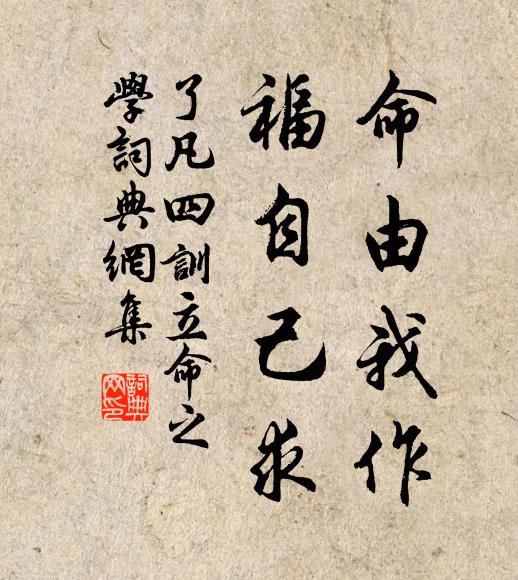 命由我作
福自己求
了凡四訓立命之
學詞典網集
詞典网印